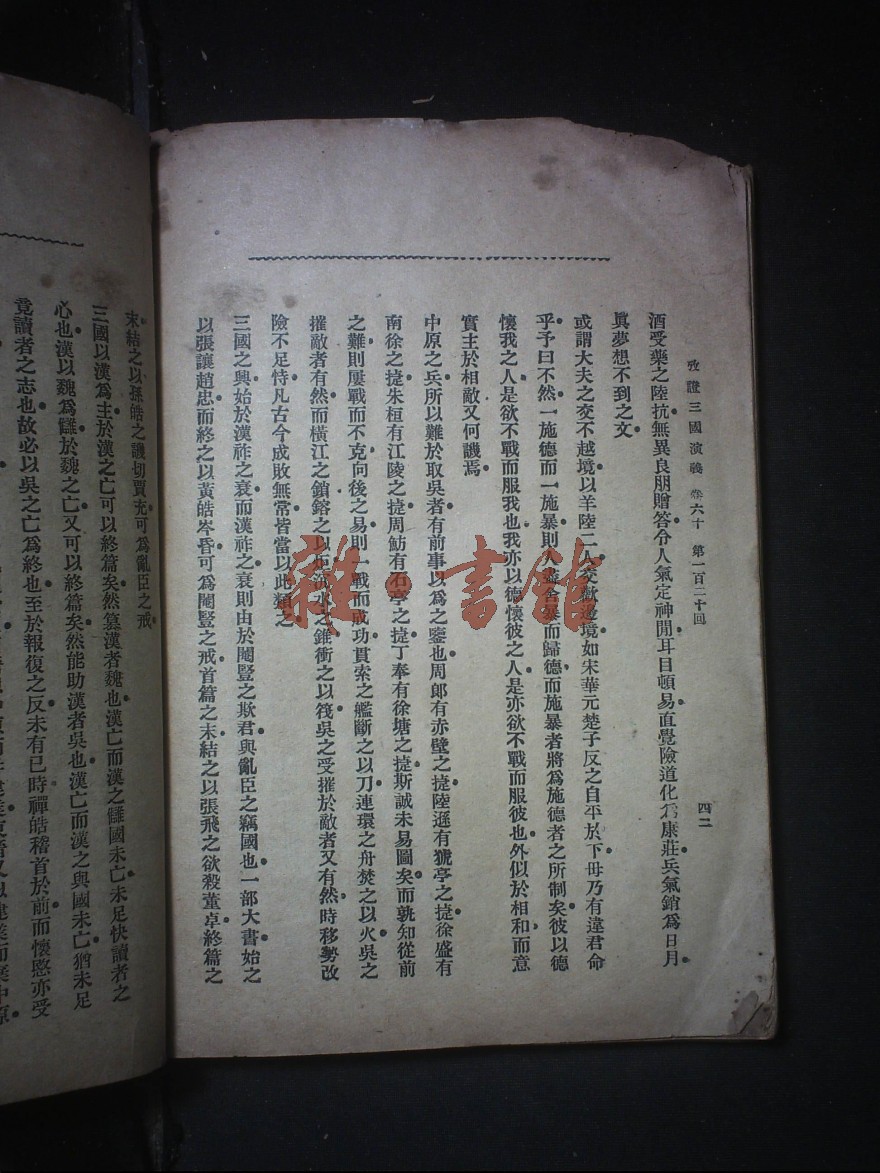 攷證三國演義 卷六十 第一百二十回 四二
酒受藥之陸抗無異良朋贈答分人氣定神閒耳目頓易直覺險道化爲康莊兵氣銷爲日月
眞夢想不到之文
或謂大夫之交不越境以羊陸二人交歡邊境如宋華元楚子反之自平於下毋乃有違君命
乎予曰不然一施德而一施暴則人盡舍暴而歸德而施暴者將爲施德者之所制矣彼以德
懷我之人是欲不戰而服我也我亦以德懷彼之人是亦欲不戰而服彼也外似於相和而意
實主於相敵又何譏焉
中原之兵所以難於取吳者有前事以爲之鑒也周郞有赤壁之捷陸遜有猇亭之捷徐盛有
南徐之捷朱桓有江陵之捷周魴有石亭之捷丁奉有徐塘之捷斯誠未易圖矣而孰知從前
之難則屢戰而不克向後之易則一戰而成功貫索之艦斷之以刀連環之舟焚之以火吳之
摧敵者有然而橫江之鎖鎔之以炬流水之錐衝之以筏吳之受摧於敵者又有然時移勢改
險不足恃凡古今成敗無常皆當以此類之
三國之興始於漢祚之衰而漢祚之衰則由於閹豎之欺君與亂臣之竊國也一部大書始之
以張讓趙忠而終之以黃皓岑昏可爲閹豎之戒首篇之末結之以張飛之欲殺董卓終篇之
末結之以孫皓之譏切賈充可爲亂臣之戒
三國以漢爲主於漢之亡可以終篇矣然篡漢者魏也漢亡而漢之讎國未亡未足快讀者之
心也漢以魏爲讎於魏之亡又可以終篇矣然能助漢者吳也漢亡而漢之與國未亡猶未足
竟讀者之志也故必以吳之亡爲終也至於報復之反未有已時禪皓稽首於前而懷愍亦受
雜·書館